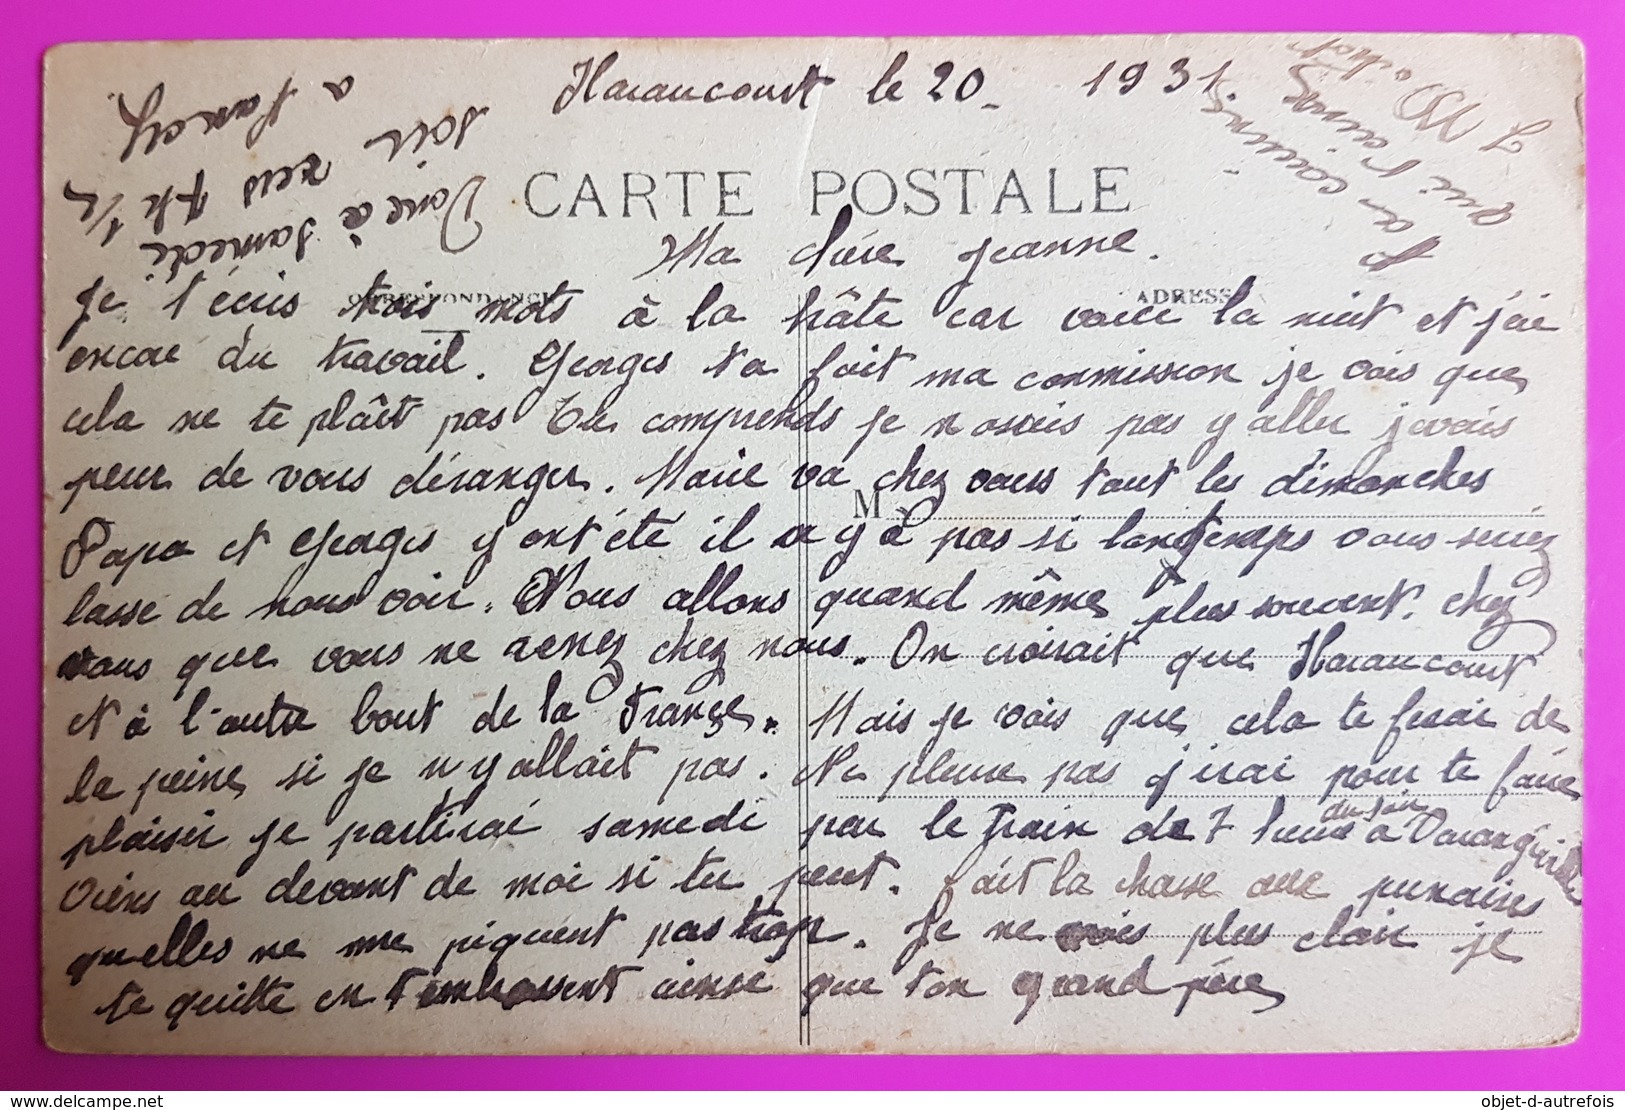 Haraucourt le 20 - 1931.
CARTE POSTALE
Ma chère Jeanne.
CORRESPONDANCE
ADRESSE
Je t'écris trois mots à la hâte car voici la nuit et j'ai
encore du travail. Georges t'a fait ma commission je vois que
cela ne te plaît pas Tu comprends je n osais pas y aller j'avais
peur de vous déranger. Marie va chez vous tout les dimanches
M
Papa et Georges y ont été il n y à pas si longtemps vous seriez
lasse de nous voir. Nous allons quand même plus souvent. chez
vous que vous ne venez chez nous. On croirait que Haraucourt
et à l'autre bout de la France. Mais je vois que cela te ferai de
la peine si je n'y allait pas. Ne pleure pas j'irai pour te faire
plaisir je partirai samedi par le train de 7 heures du soir à Varangéville
Viens au devant de moi si tu peut. fait la chasse aux punaises
qu'elles ne me piquent pas trop. Je ne vois plus clair je
te quitte en t'embrassent ainsi que ton grand père
Donc à samedi
soir vers 7h 1/2
a Nancy